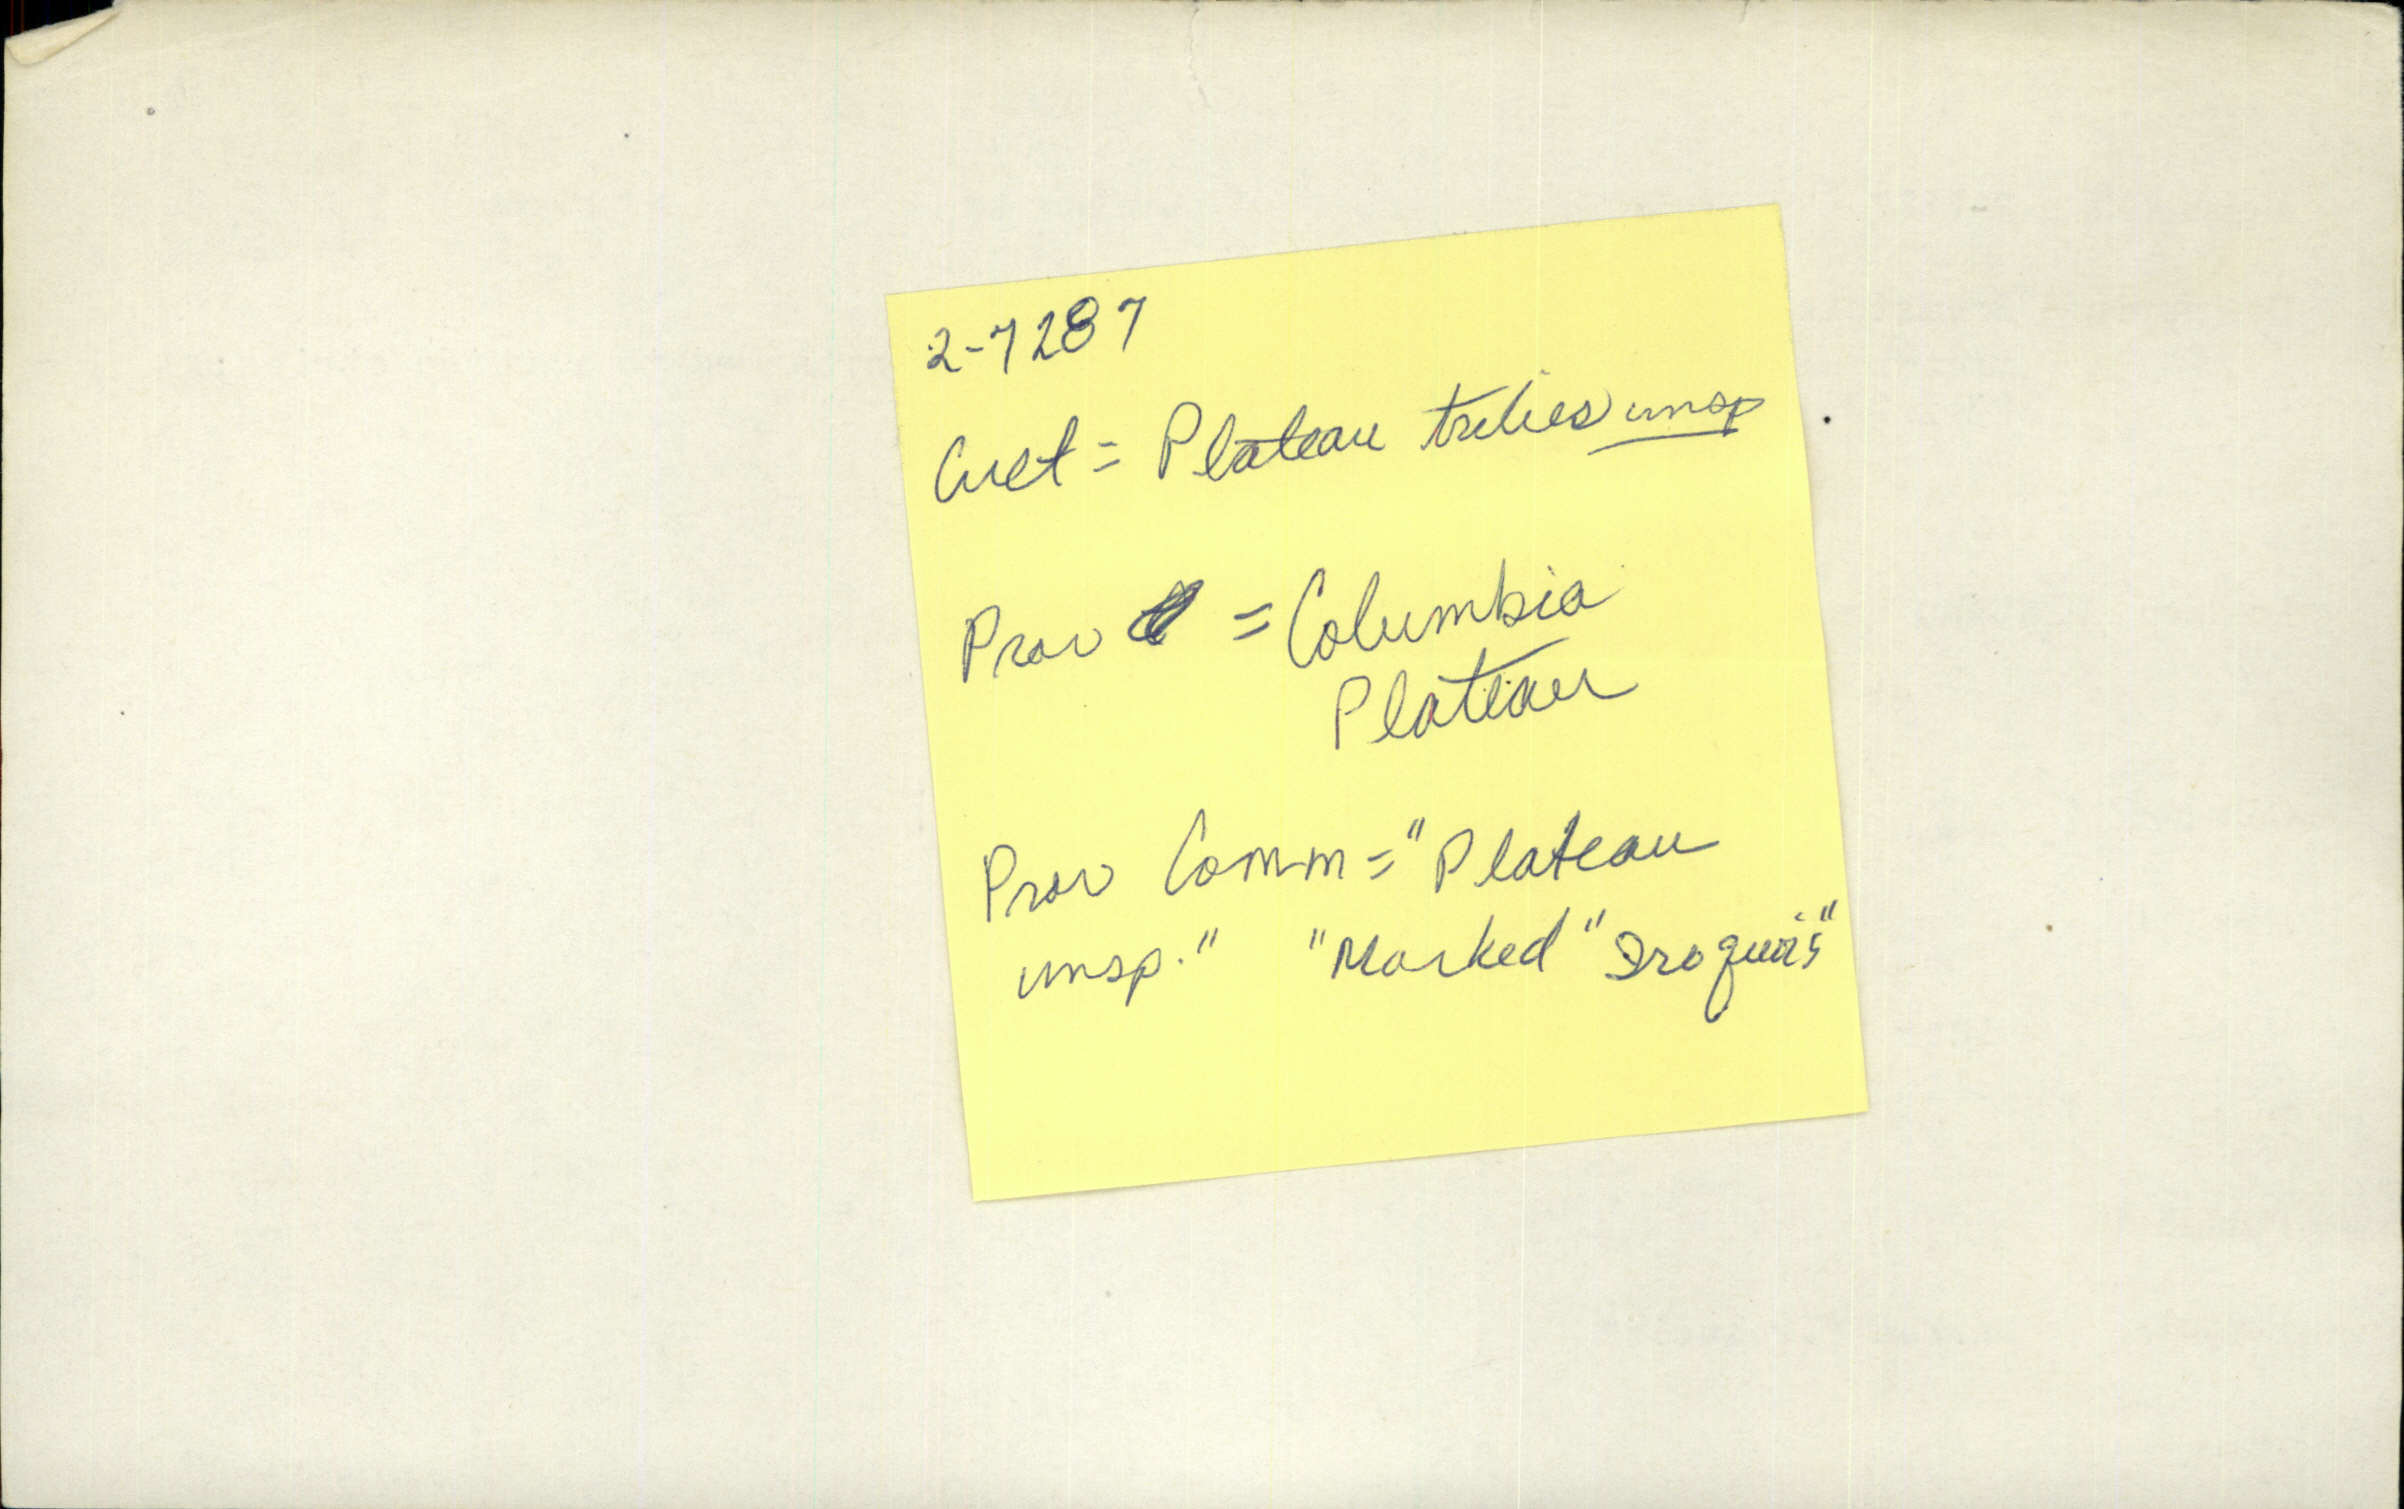 2-7287
Cult = Plateau tribes unsp
Prov = Columbia
Plateau
Prov Comm = "Plateau
unsp." "Marked "Iroquois"